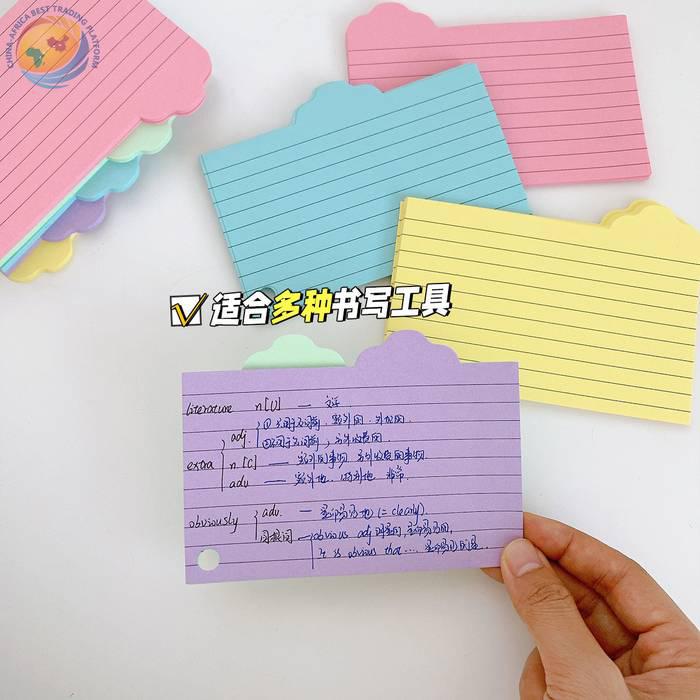 CHINA-AFRICA BEST TRADING PLATFORM
适合多种书写工具
literature n[U] — 文学
adj. ①不用于名词前, 额外的
②不用于名词前, 另外收费的
extra n. [C] — 额外的事物 另外收费的事物
adv — 额外地, 非常
obviously adv. — 显而易见地 (= clearly).
同根词 → obvious adj 明显的, 显而易见的,
It is obvious that .... 显而易见的是...